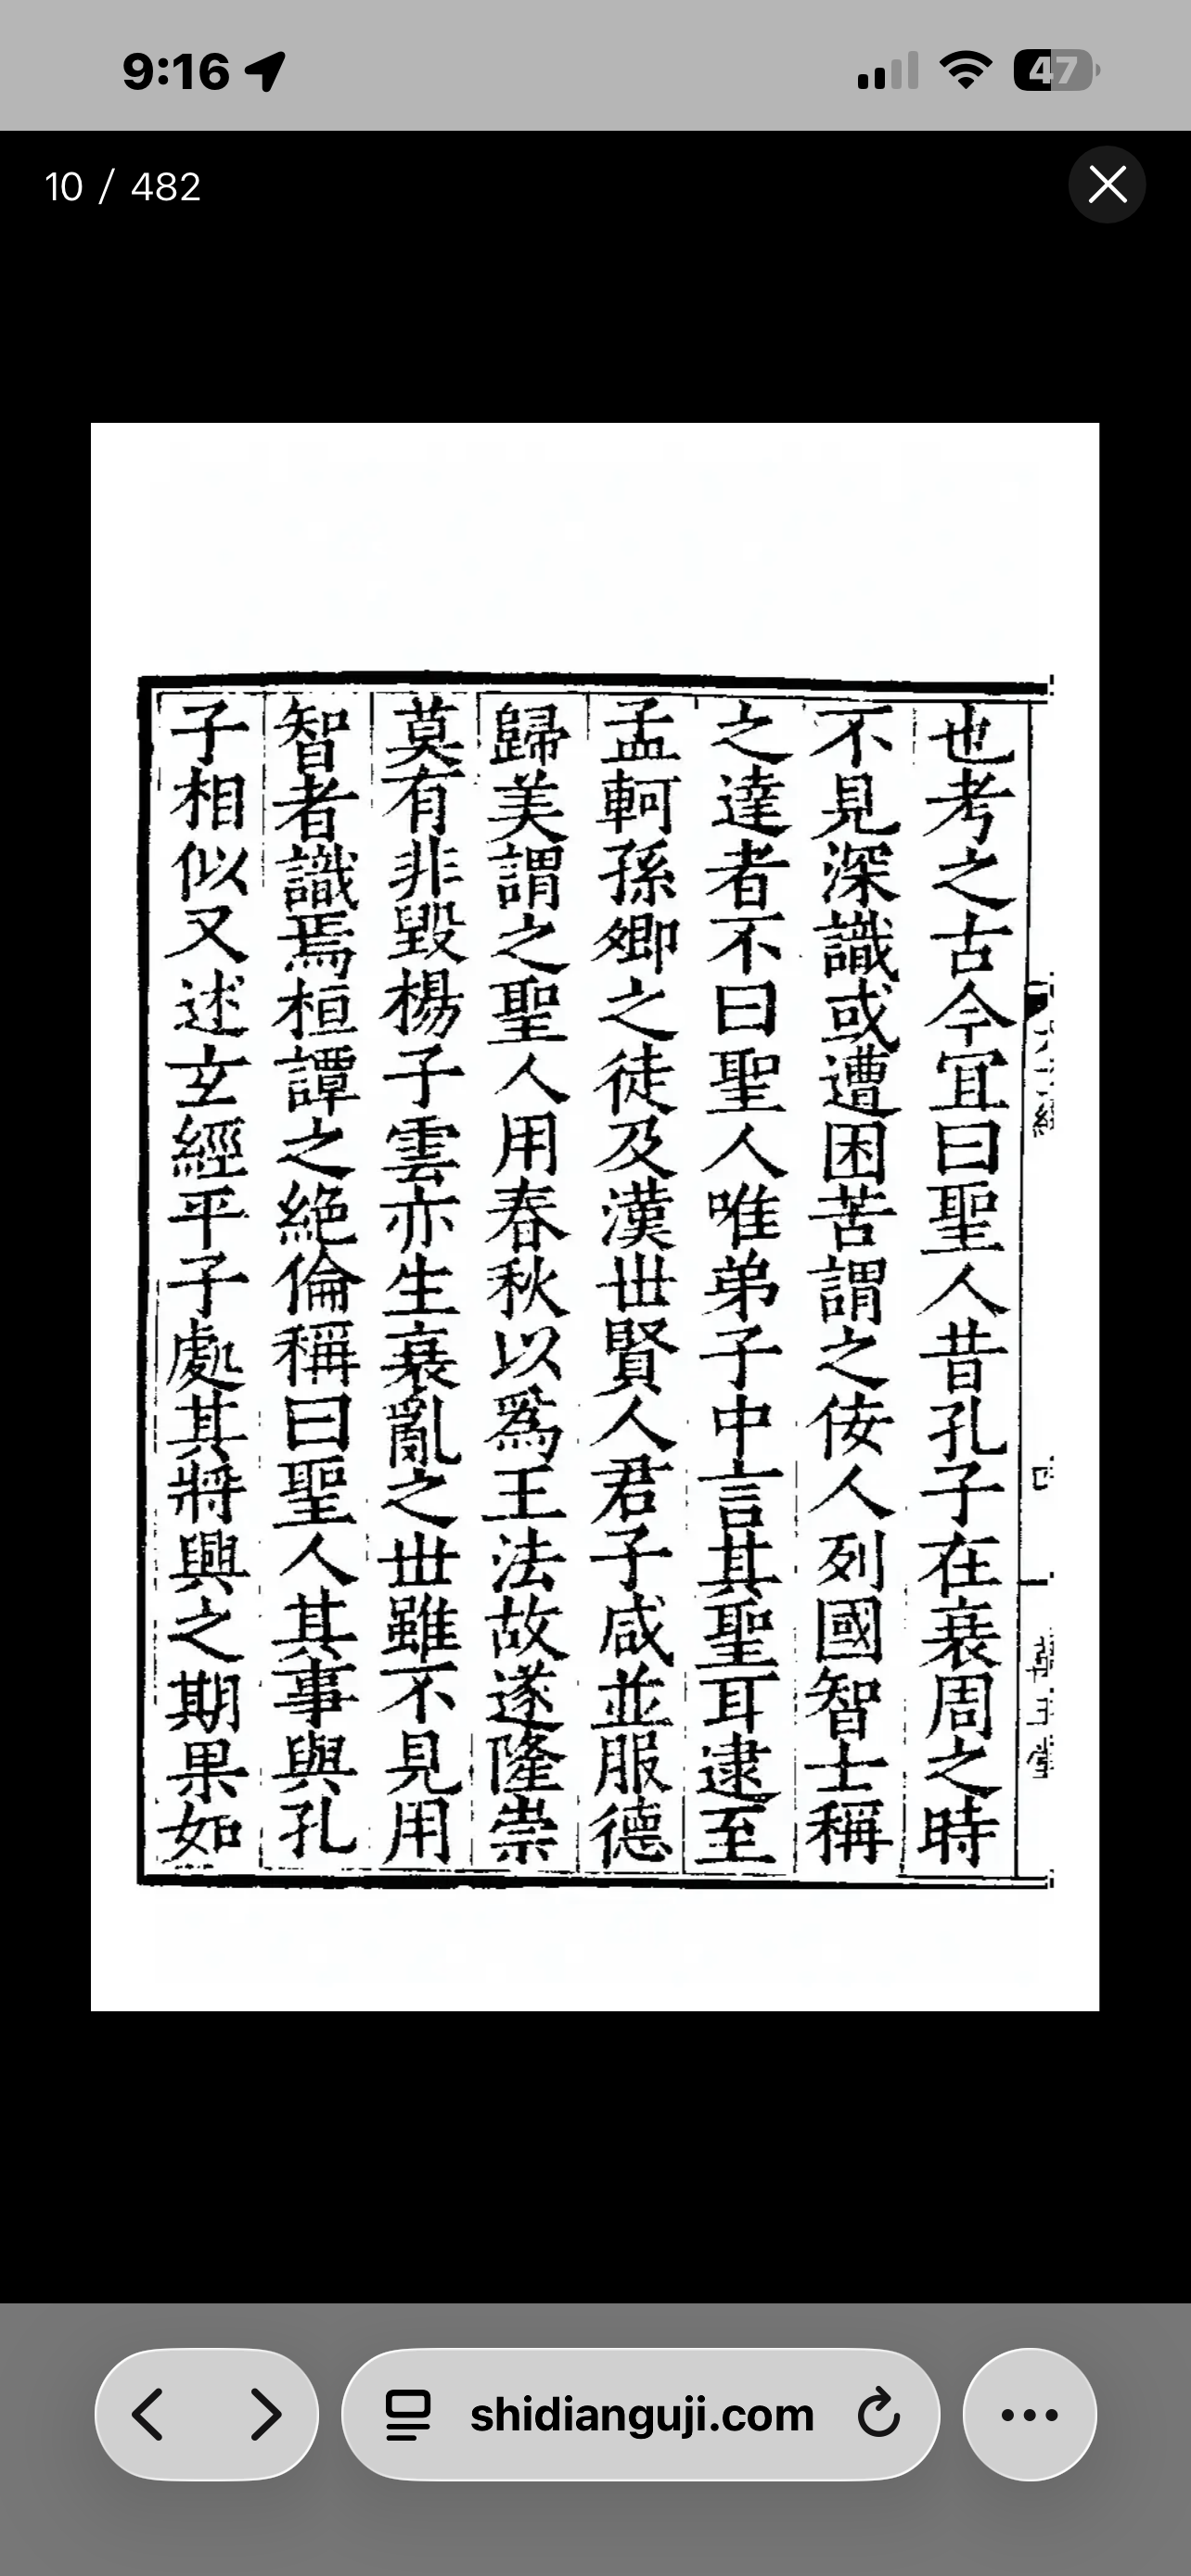 9:16
47
10 / 482
也考之古今冝曰聖人昔孔子在衰周之時
不見深識或遭困苦謂之侫人列國智士稱
之達者不曰聖人唯弟子中言其聖耳逮至
孟軻孫卿之徒及漢丗賢人君子咸並服德
歸美謂之聖人用春秋以爲王法故遂隆崇
莫有非毀楊子雲亦生衰亂之丗雖不見用
智者識焉桓譚之絶倫稱曰聖人其事與孔
子相似又述玄經平子處其將興之期果如
shidianguji.com